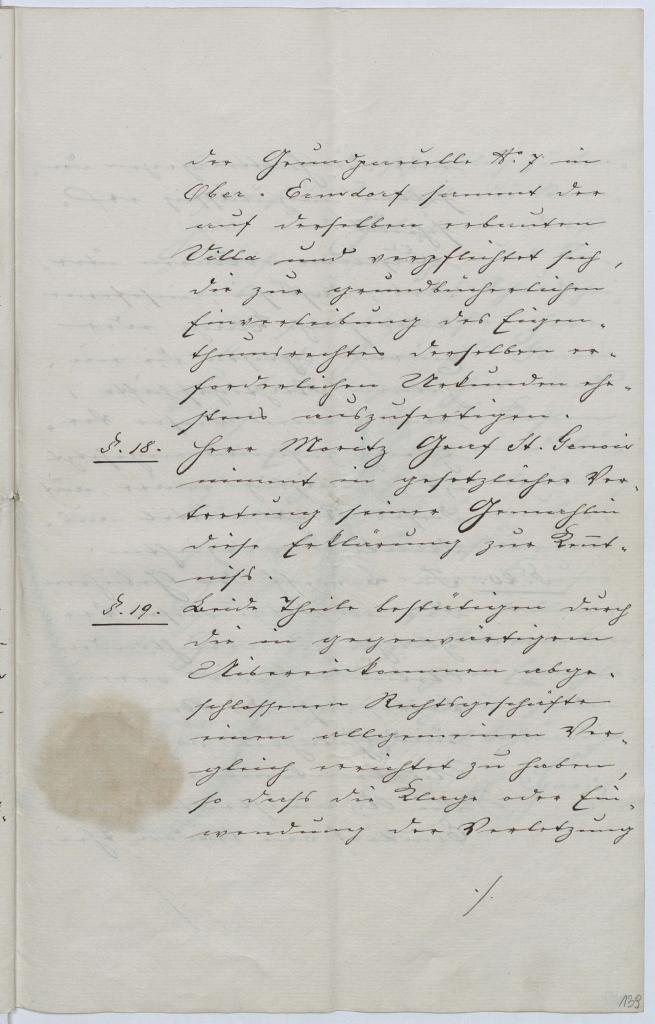 der Grundparcelle No. 7 in
Ober-Ernsdorf sammt der
auf derselben erbauten
Villa und verpflichtet sich,
die zur grundbücherlichen
Einverleibung des Eigen-
thumsrechtes derselben er-
forderlichen Urkunden ehe-
stens auszufertigen.
§. 18. Herr Moritz Graf St. Genois
nimmt in gesetzlicher Ver-
tretung seiner Gemahlin
diese Erklärung zur Kennt-
niss.
§. 19. Beide Theile bestätigen durch
die in gegenwärtigem
Uibereinkommen abge-
schlossenen Rechtsgeschäfte
einen allgemeinen Ver-
gleich errichtet zu haben,
so dass die Klage oder Ein-
wendung der Verletzung
./.
139